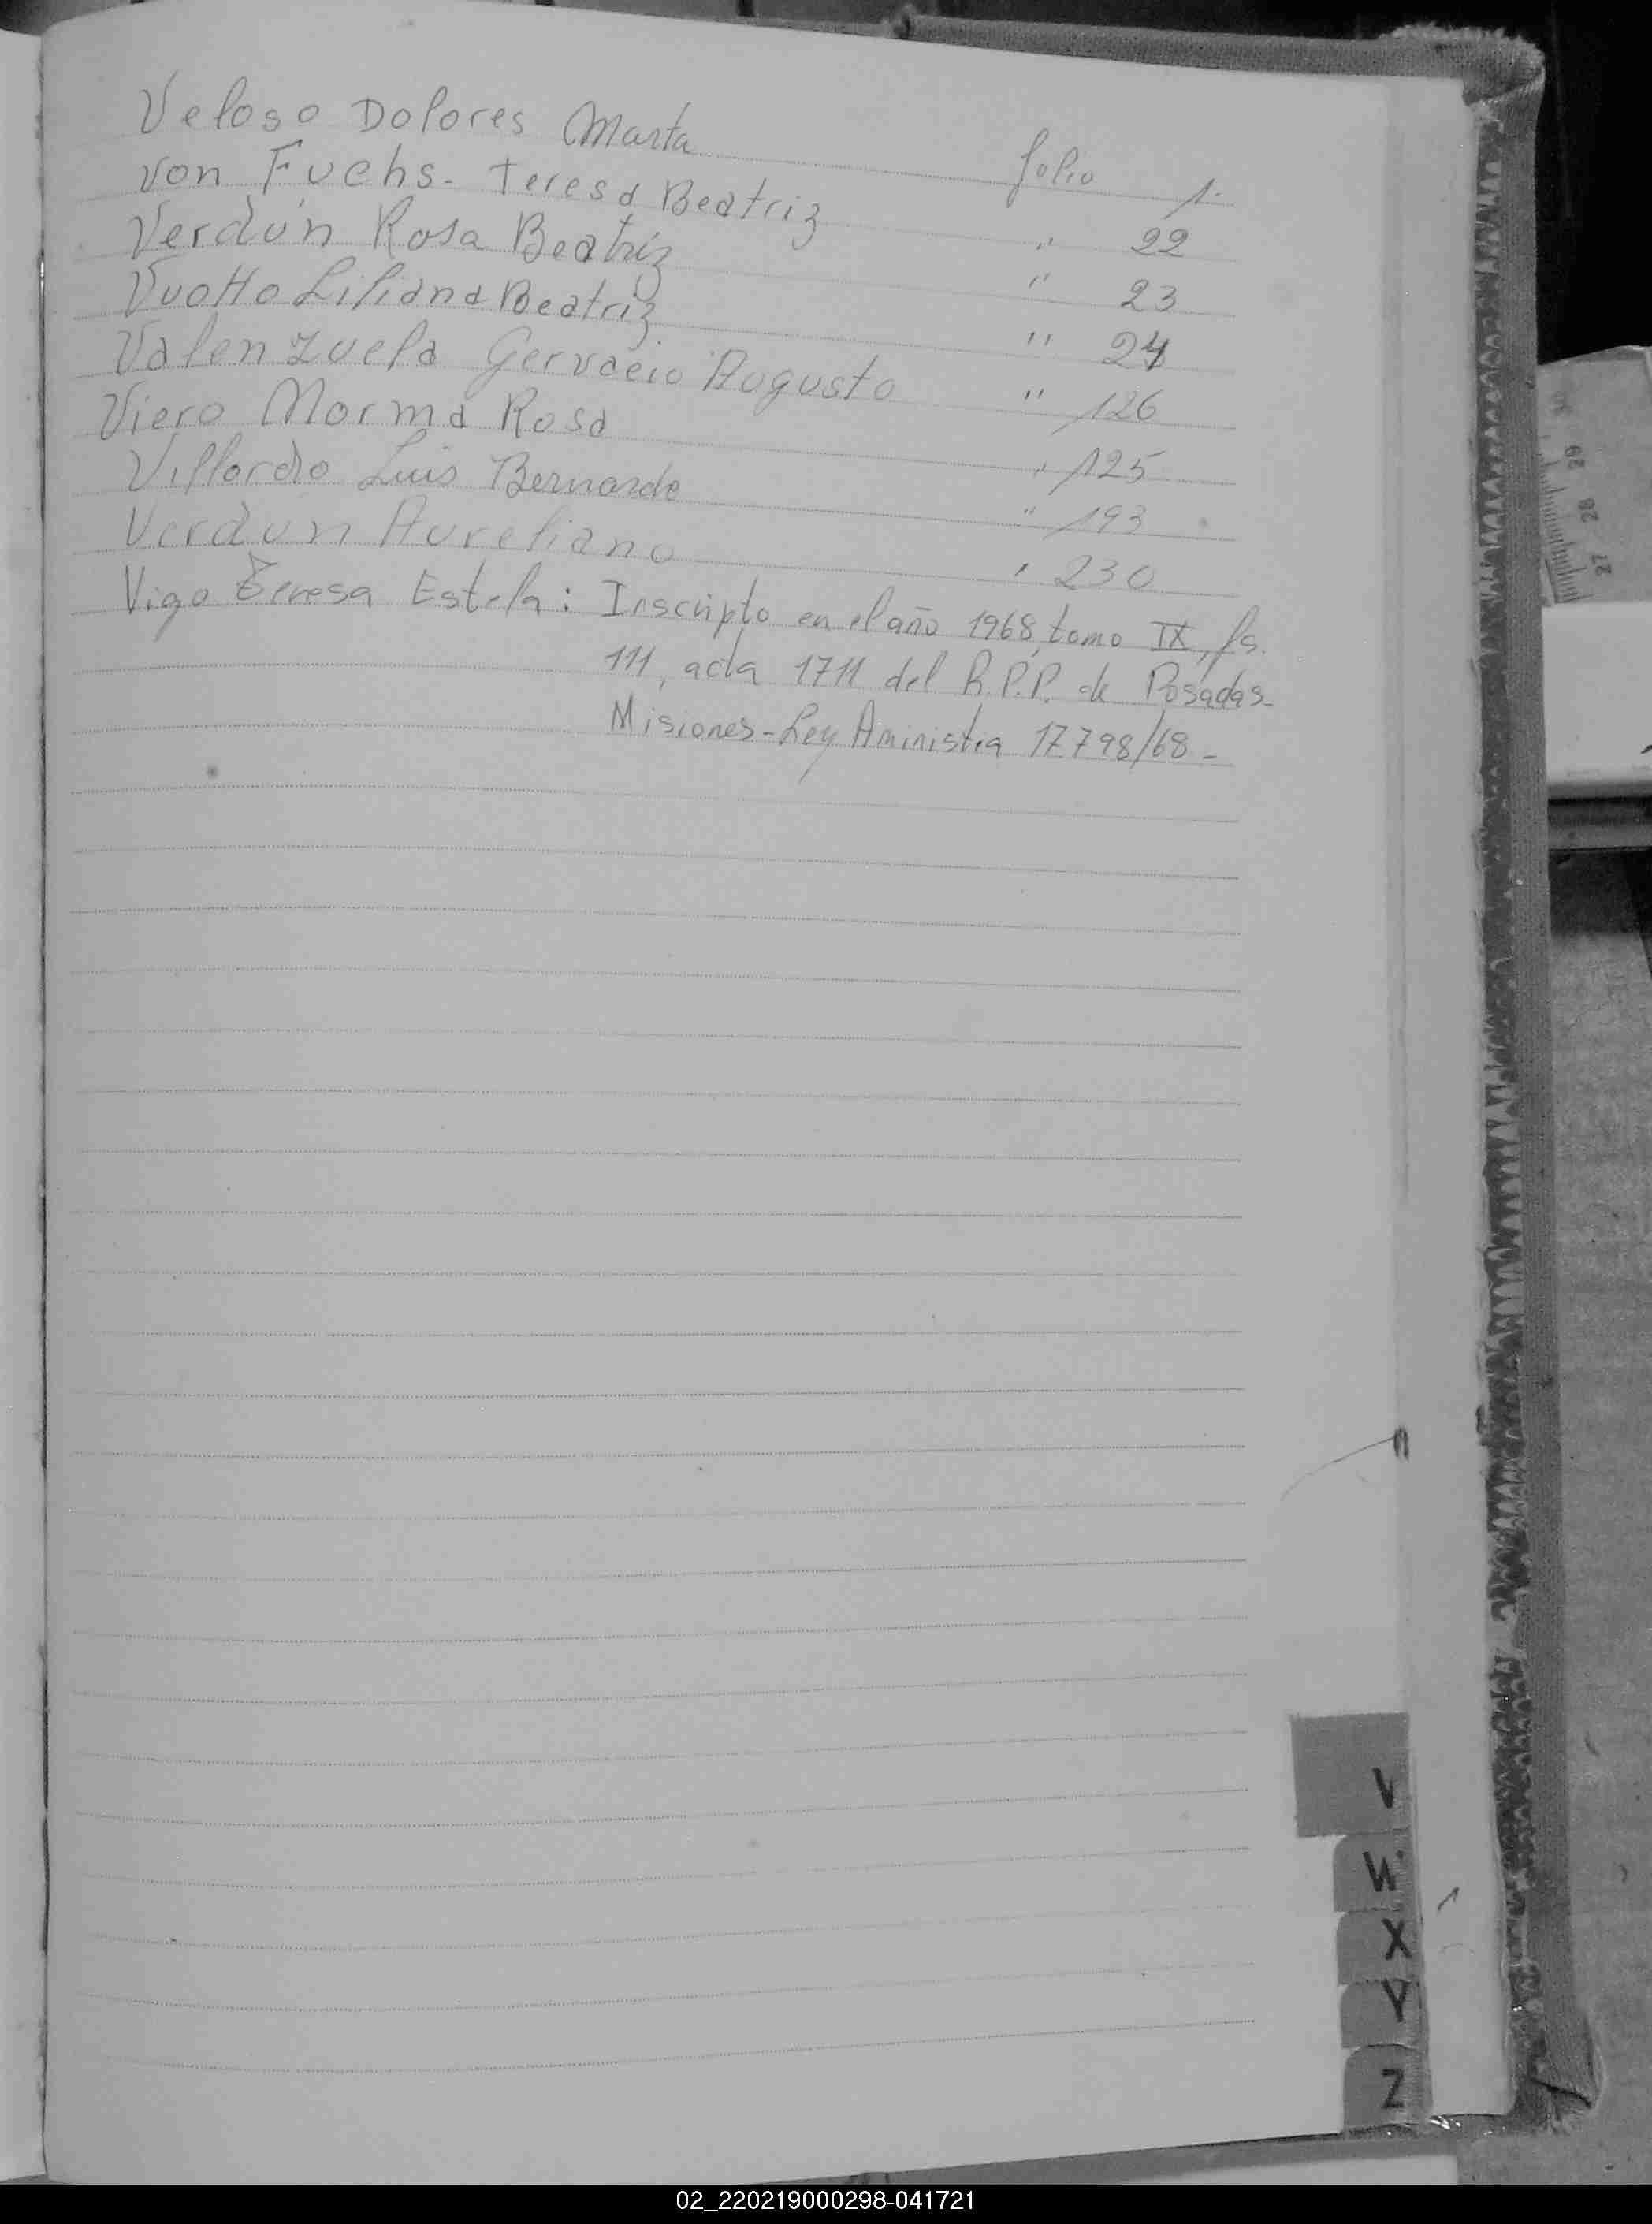 Veloso Dolores Marta folio 1.
von Fuchs. Teresa Beatriz " 22
Verdún Rosa Beatriz " 23
Vuotto Liliana Beatriz " 24
Valenzuela Gervacio Augusto " 126
Viero Norma Rosa " 125
Villordo Luis Bernardo " 193
Verdun Aureliano " 230
Vigo Teresa Estela: Inscripto en el año 1968, tomo IX, fs.
111, acta 1711 del R.P.P. de Posadas-
Misiones-Ley Aministia 17798/68-
29
28
27
V
W
X
Y
Z
02_220219000298-041721